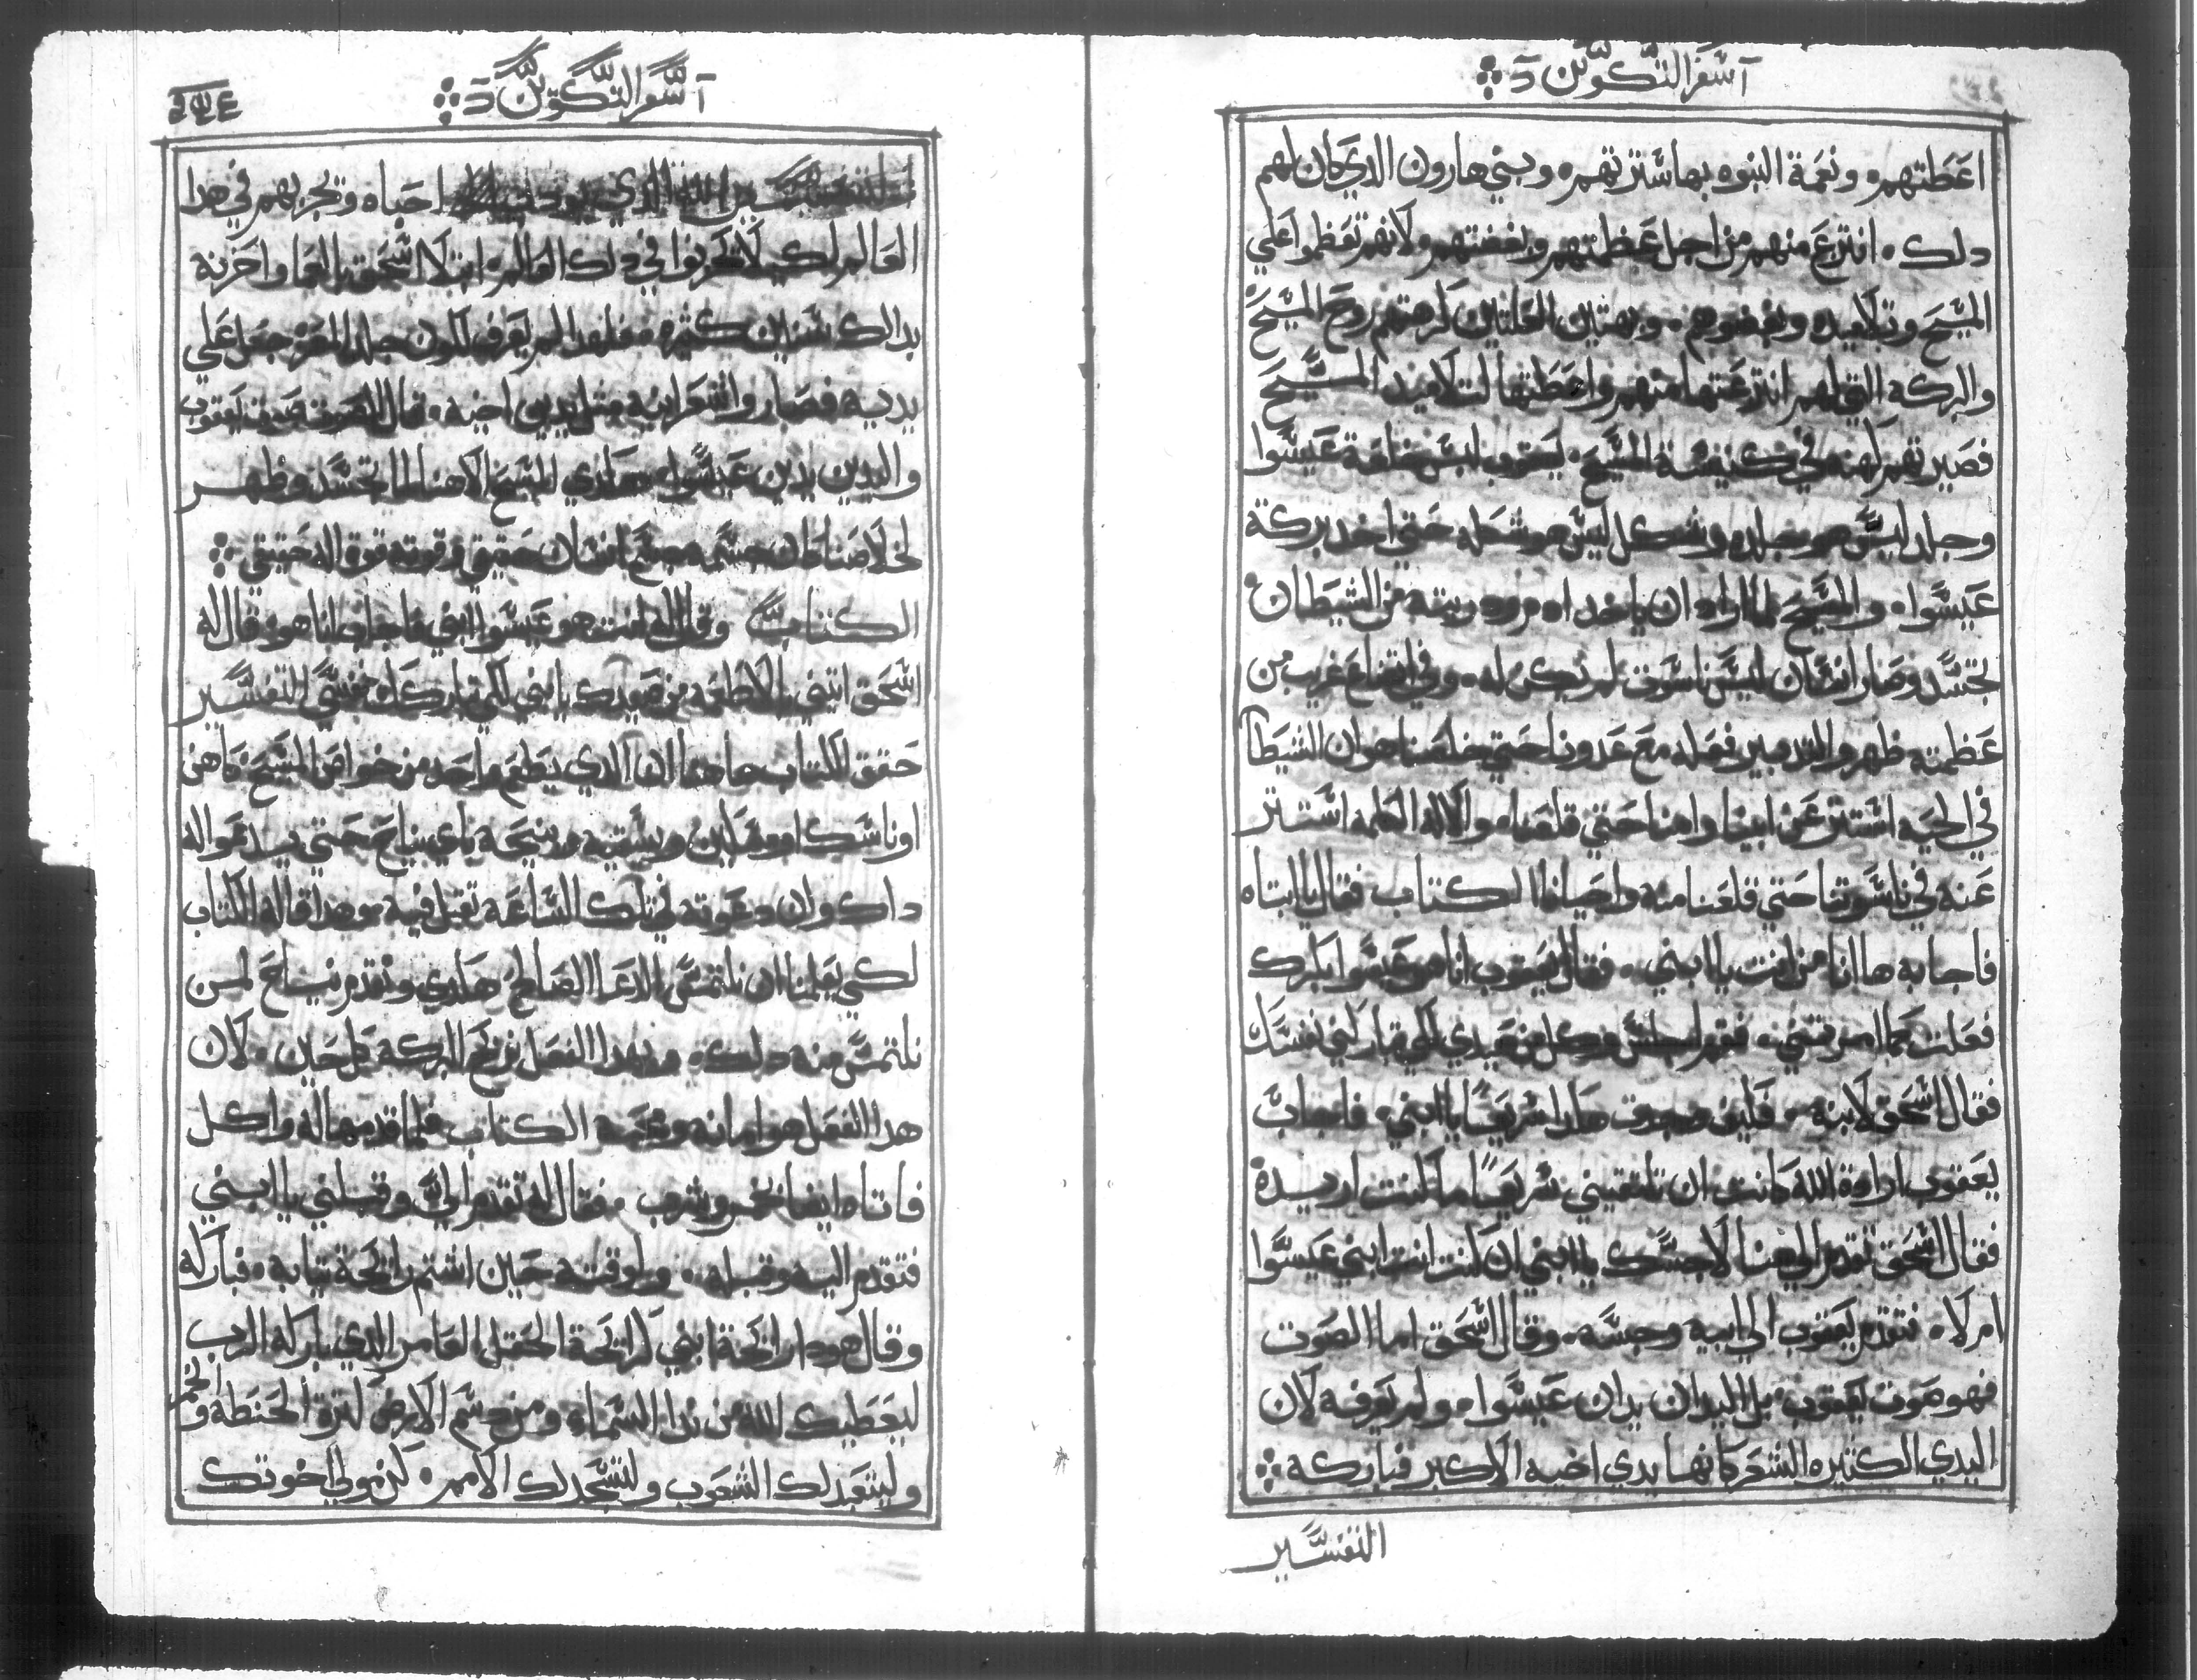 آ سفر التكوين د
اعطتهم ونعمة النبوه بها سترتهم وبني هارون الدي كان لهم
دلك انتزع منهم من اجل عظمتهم وبغضتهم ولانهم تعظموا علي
المسيح وتلاميده وبغضوهم وبهتين العلتين كرهتهم روح المسيح
والبركه التي لهم انتزعتها منهم واعطتها لتلاميد المسيح
فصيرتهم كهنه في كنيسة المسيح يعقوب لبس خلعة عيسوا
وجلد ليس هو جلده وشكل ليس هو شكله حتي اخد بركة
عيسوا والمسيح لما اراد ان ياخد ادم ودريته من الشيطان
تجسد وصار انسان لبس ناسوت لم يكن له وفي اتضاع غريب من
عظمته ظهر والتدبير فعله مع عدونا حتي خلصنا هوان الشيطا
في الحيه استتر عن ابينا وامنا حتي قلعنا والاله الكلمه استتر
عنه في ناسوتنا حتي قلعنا منه واحيانا الكتاب فقال يا ابتاه
فاجابه ها انا من انت يا ابني فقال يعقوب انا هو عيسوا بكرك
فعلت كما امرتني فقم اجلس وكل من صيدي لكي تباركني نفسك
فقال اسحق لابنه فكيف وجدت هدا سريعًا يا ابني فاجاب
يعقوب ارادة الله كانت ان تلتقيني سريعًا ما كنت اريده
فقال اسحق تقدم الي هنا لاجسك يا ابني ان كنت انت ابني عيسوا
ام لا فتقدم يعقوب الي ابيه وجسه وقال اسحق اما الصوت
فهو صوت يعقوب بل اليدان يدان عيسوا ولم يعرفه لان
اليدي الكتيره الشعر كانها يدي اخيه الاكبر فباركه
التفسير
آ سفر التكوين د
الدي احباه وتجربهم في هدا
العالم لكي لا يحزنوا في دلك العالم ابتلا اسحق بالعما واحزنه
بدالك سنين كتيره فلهدا لم يعرف لكون جلد المعز جعل علي
يديه فصاروا شعرانيه متل يدي اخيه قال الصوت صوت يعقوب
واليدين يدين عيسوا هكدي المسيح الاهنا لما تجسد وظهر
لخلاصنا كان جسمه جسم انسان حقيقي وقوته قوة اله حقيقي
الكتاب وقال له انت هو عيسوا ابني فاجاب انا هو قال له
اسحق اتيني بالاطعمه من صيدك يا ابني لكي تباركك نفسي التفسير
حقق الكتاب هاهنا ان الدي يطعم واحد من خواص المسيح كاهن
او ناسك او وهابن ويسقيه ودينيحه باي نياح حتي يدعوا له
داك وان دعوته في تلك الساعه تقبل فيه وهدا قاله الكتاب
لكي يعلمنا ان نلتمس الدعا الصالح هكدي ونقدم نياح لمن
نلتمس منه دلك وبهدا الفعل نربح البركه كل حين لان
هدا الفعل هو امانه ومحبه الكتاب فلما قدمها له واكل
فاتاه ايضا بخمر وشرب فقال له تقدم اليّ وقبلني يا ابني
فتقدم اليه وقبله ولوقته حين اشتم رايحة تيابه فباركه
وقال هودا رايحة ابني كرايحة الحقل العامر الدي باركه الرب
ليعطيك الله من ندا السماء ومن دسم الارض كترة الحنطه والخمر
وليتعبد لك الشعوب ولتسجد لك الامم كن مولي اخوتك